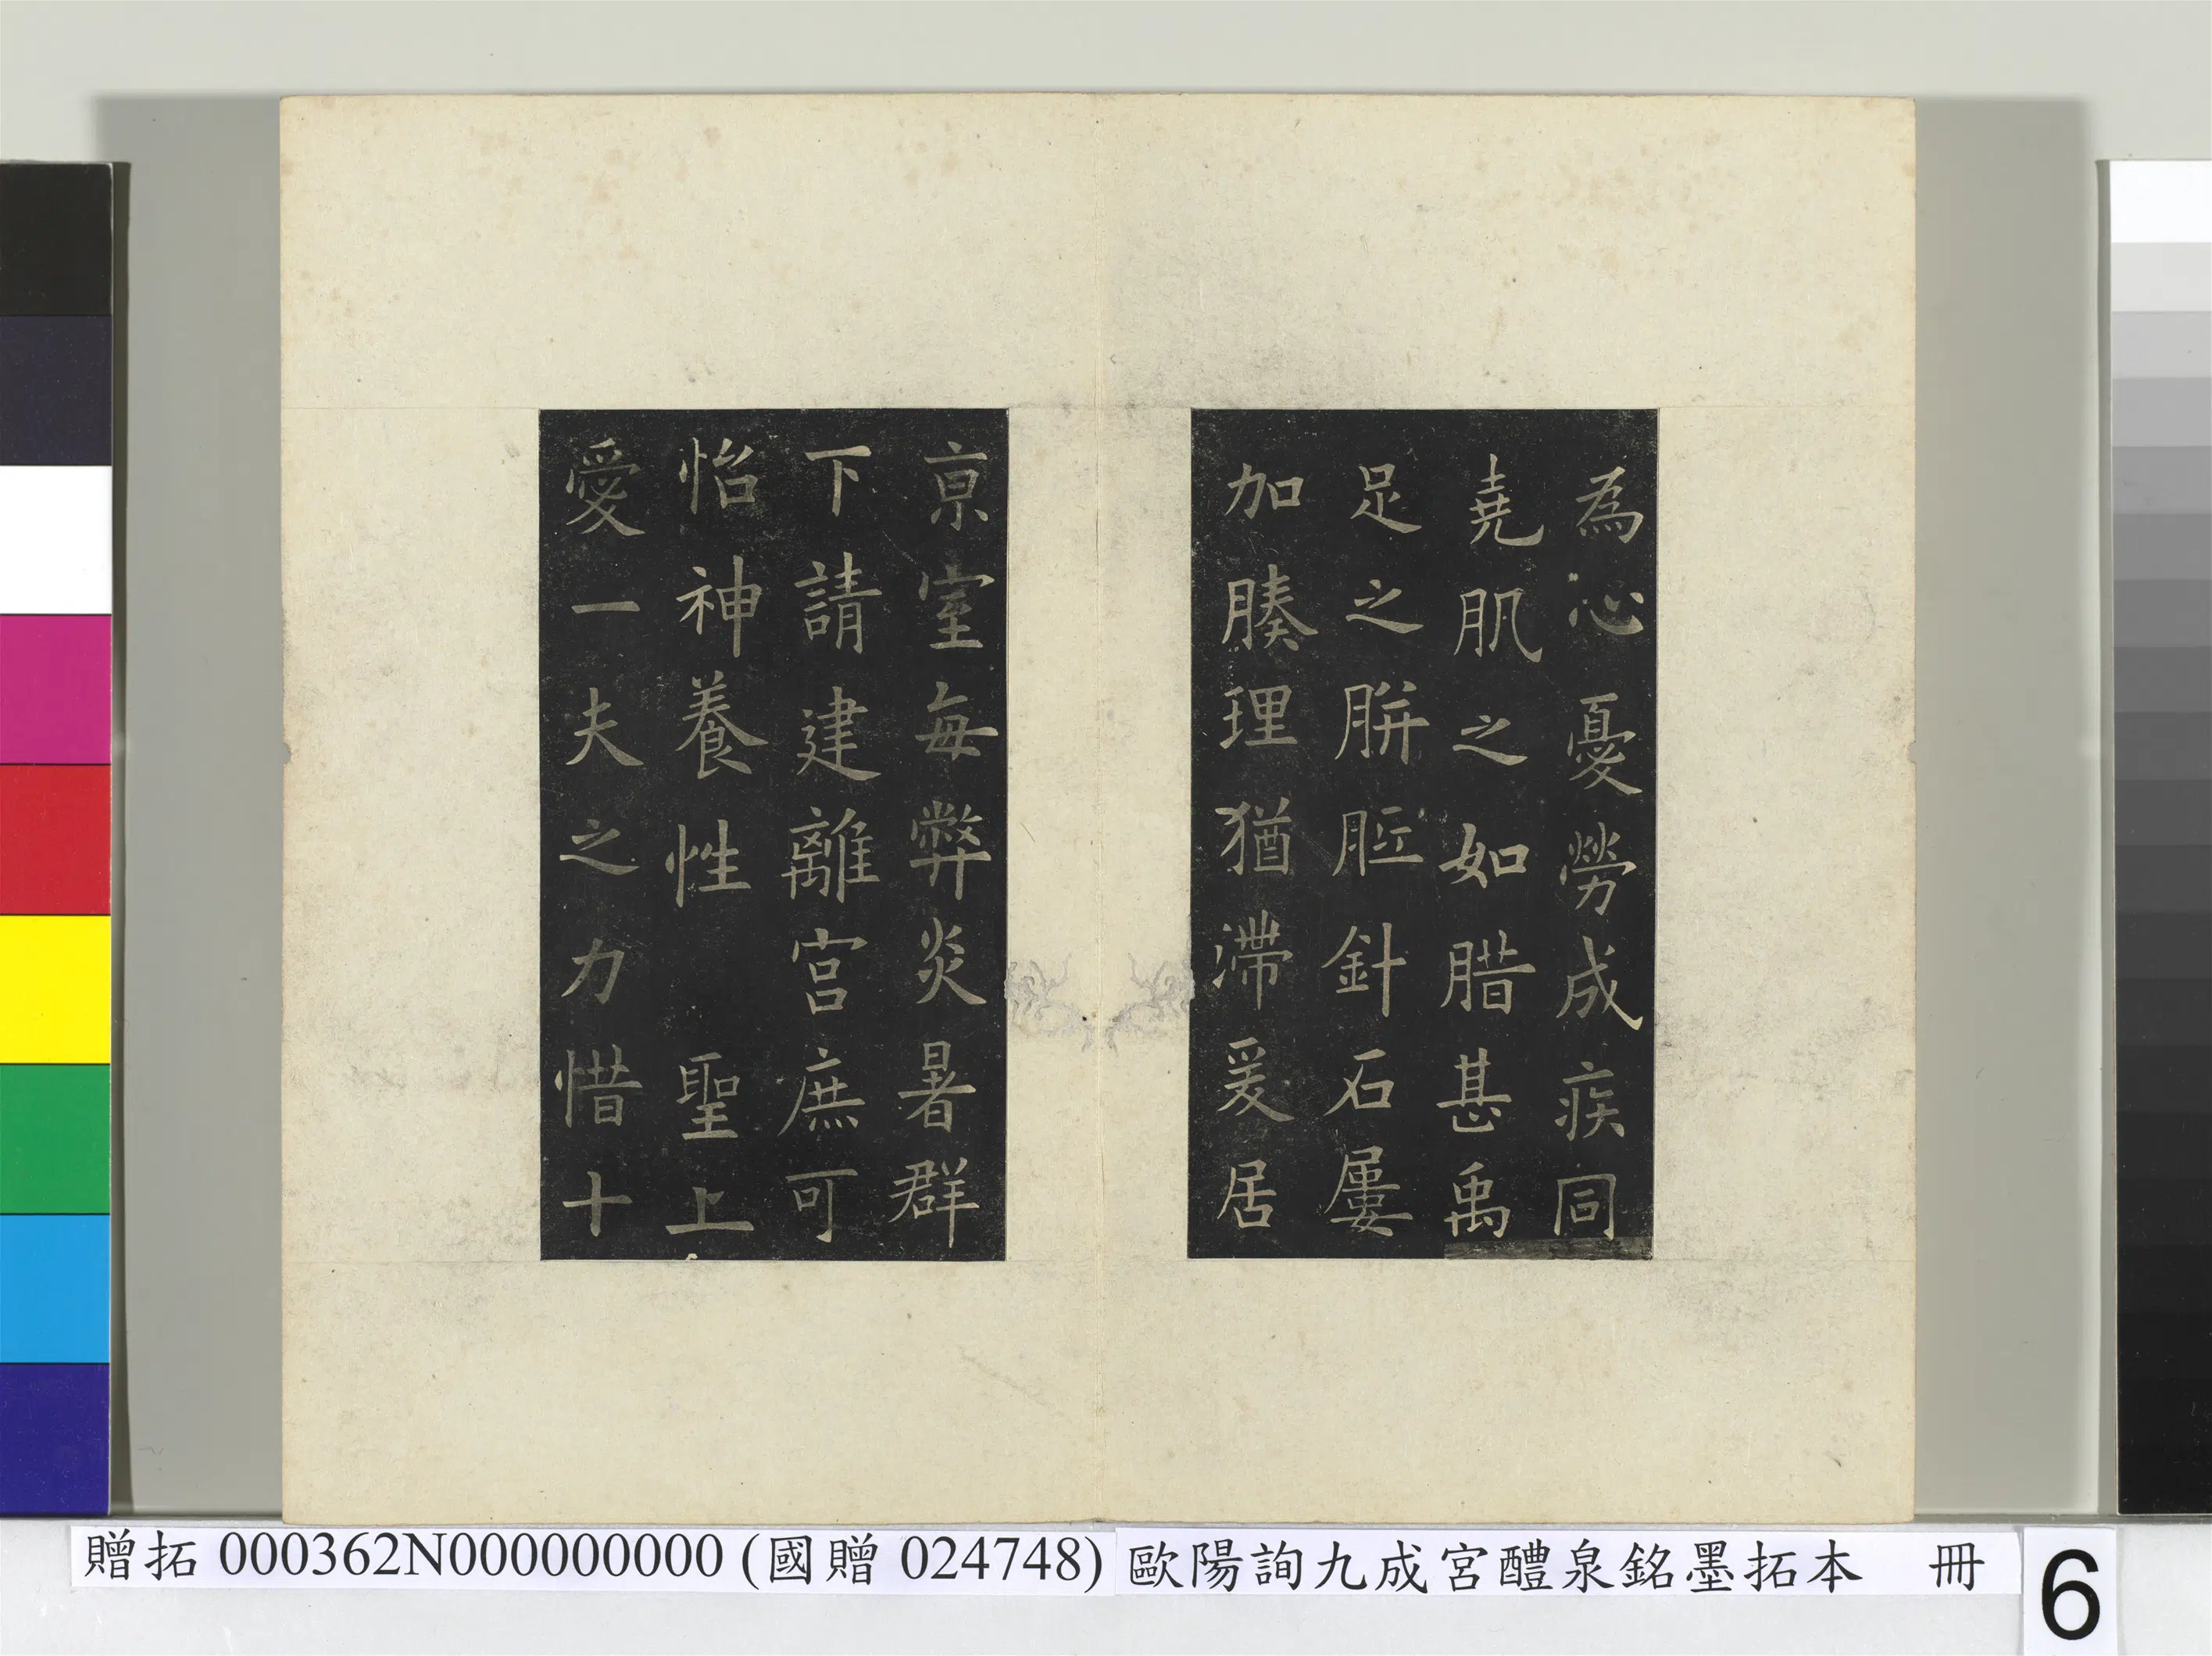 為心憂勞成疾同
堯肌之如腊甚禹
足之腁胝針石屢
加腠理猶滯爰居
京室每弊炎暑群
下請建離宮庶可
怡神養性聖上
愛一夫之力惜十
贈拓000362N000000000 (國贈024748) 歐陽詢九成宮醴泉銘墨拓本 冊
6